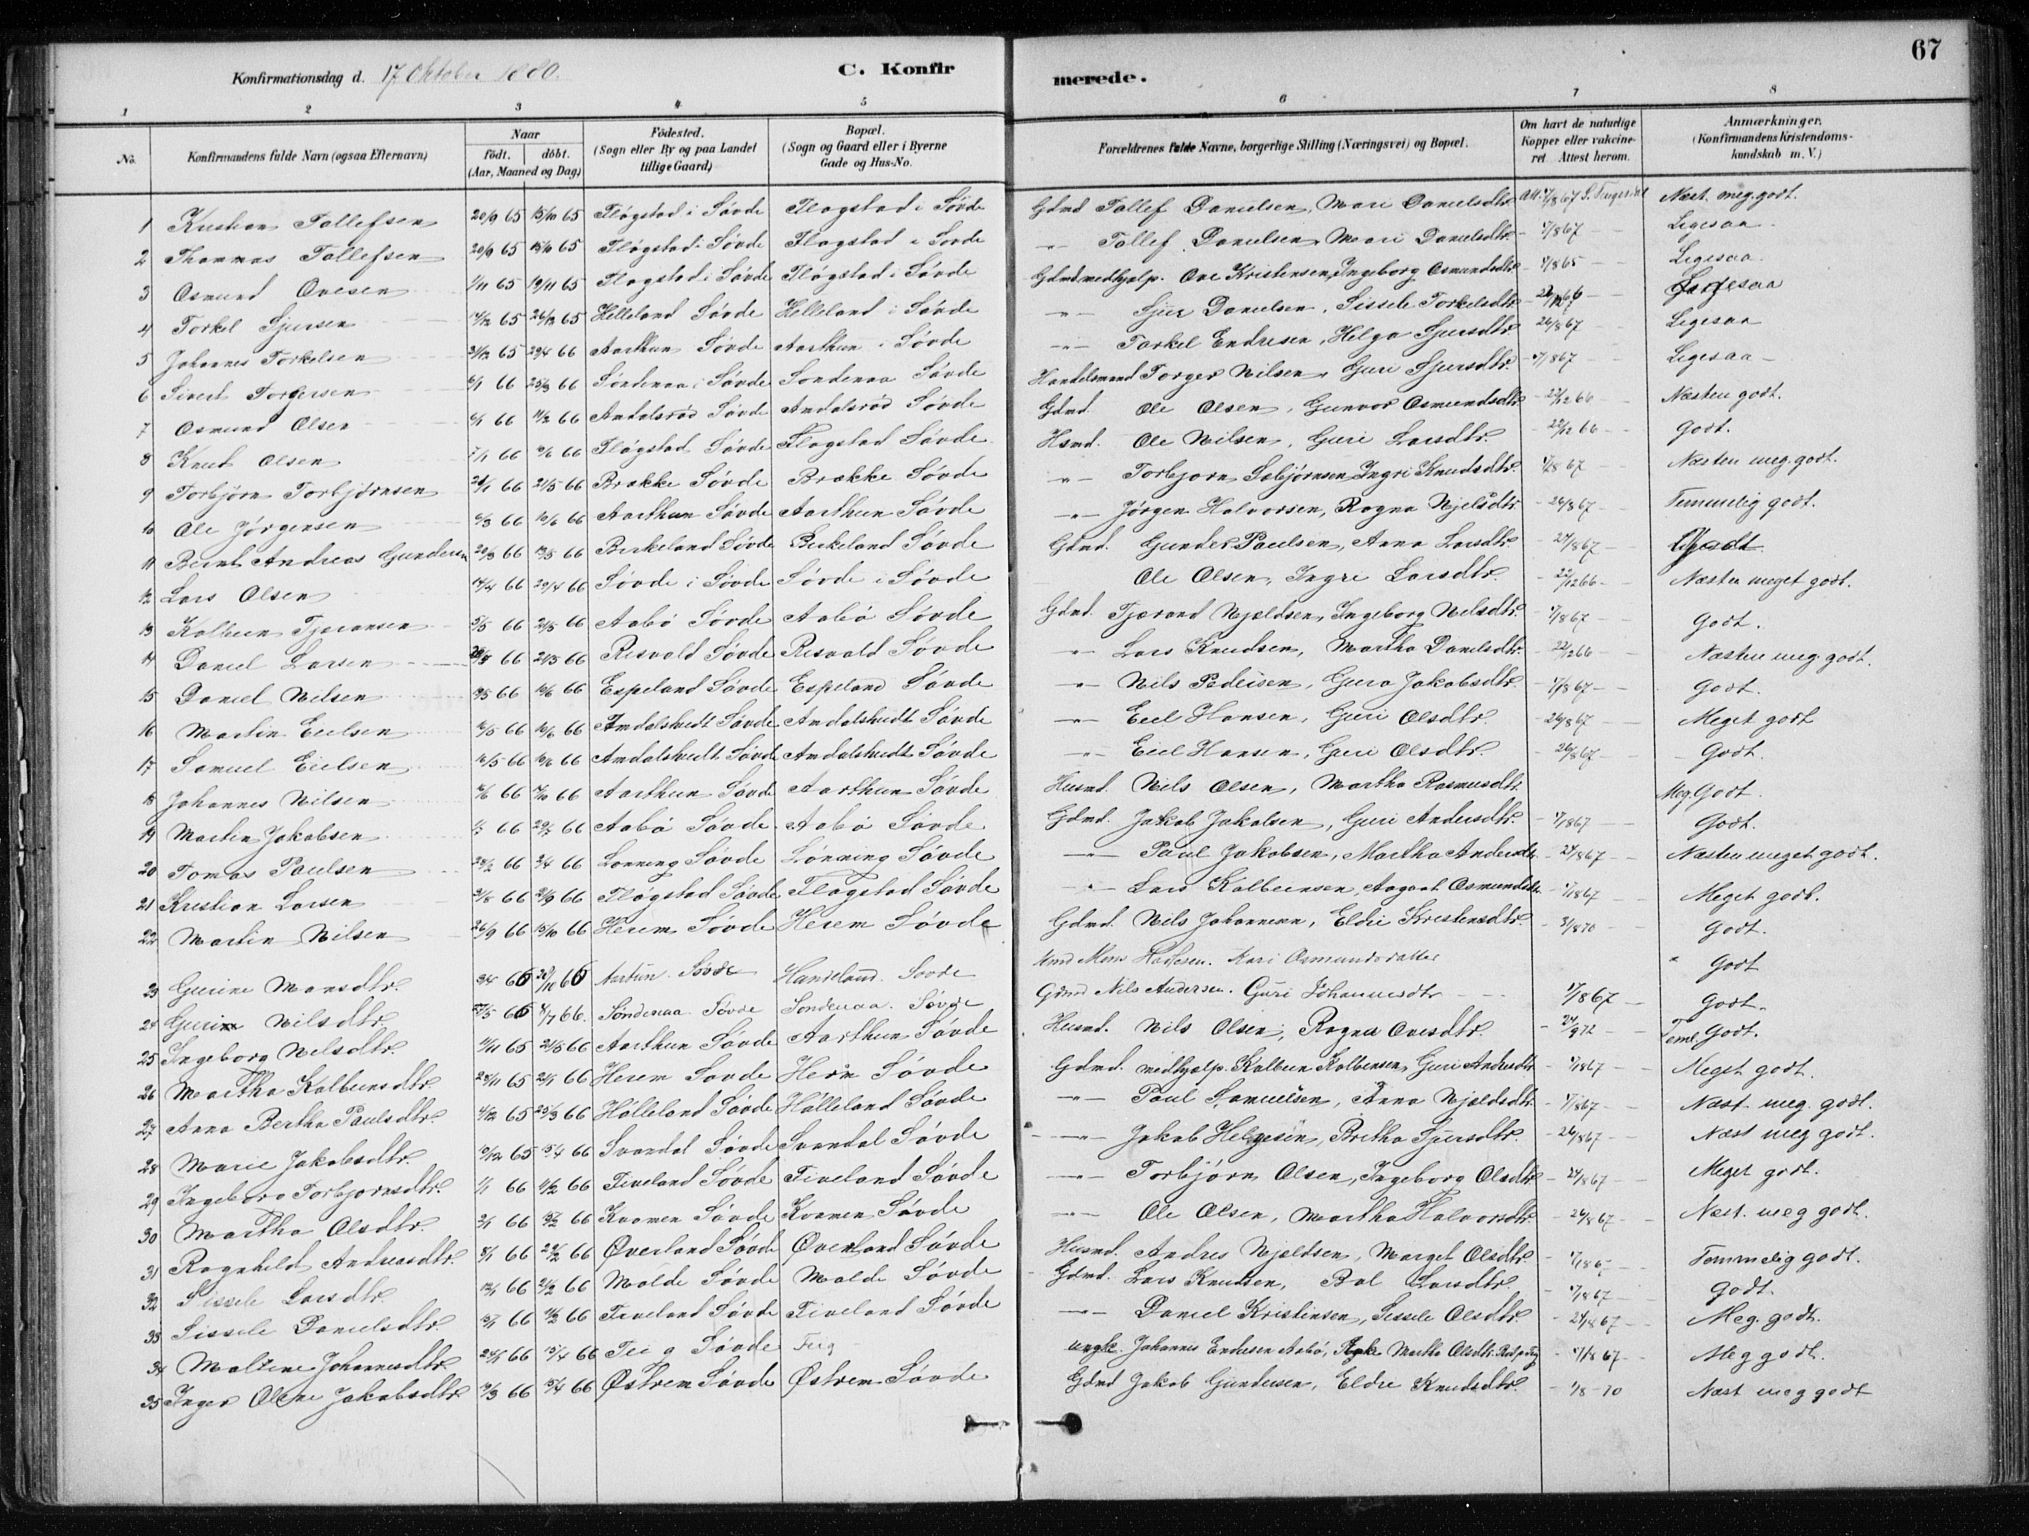 67
Konfirmationsdag d. 17 Oktober 1880.
C. Konfirmerede.
1 2 3 4 5 6 7 8
No. Konfirmandens fulde Navn (ogsaa Efternavn) Naar født. døbt. (Aar, Maaned og Dag) Fødested. (Sogn eller By og paa Landet tillige Gaard) Bopæl. (Sogn og Gaard eller i Byerne Gade og Hus-No. Forældrenes fulde Navne, borgerlige Stilling (Næringsvei) og Bopæl. Om havt de naturlige Kopper eller vakcineret. Attest herom. Anmærkninger. (Konfirmandens Kristendomskundskab m. V.)
1 Kristian Tollefsen 20/9 65 15/10 65 Fløgstad i Søvde Fløgstad i Søvde Gdmd Tollef Danielsen, Mari Danielsdtr. Att. 17/8 67 Næst. meg. godt.
2 Thomas Tollefsen 20/9 65 15/10 65 Fløgstad i Søvde Fløgstad i Søvde -"- Tollef Danielsen Mari Danielsdtr. - 17/8 67 Ligesaa
3 Osmund Ovesen 1/11 65 19/11 65 Fløgstad i Søvde Fløgstad i Søvde Gdmd medhjælp. Ove Kristensen, Ingeborg Osmundsdtr. Ligesaa
4 Torkel Sjursen 65 26/12 65 Helleland Søvde Helleland i Søvde -"- Sjur Danielsen, Sissele Torkelsdtr. Ligesaa
5 Johannes Torkelsen 31/12 65 29/4 66 Aarthun Søvde Aarthun i Søvde -"- Torkel Endresen, Helga Sjursdtr. 26/8 67 Ligesaa
6 Sivert Torgersen 6/1 66 25/3 66 Søndenaa i Søvde Søndenaa Søvde Handelsmand Torger Nilsen, Guri Sjursdtr. 17/8 67 Ligesaa
7 Osmund Olsen 6/1 66 11/2 66 Amdalsrød Søvde Amdalsrød Søvde Gdmd. Ole Olsen, Gunvor Osmundsdtr. 22/12 66 Næsten godt.
8 Knut Olsen 7/1 66 10/6 66 Fløgstad Søvde Fløgstad Søvde Hsmd. Ole Nilsen, Guri Larsdtr. 22/12 66 Godt.
9 Torbjørn Torbjørnsen 66 21/5 66 Brække Søvde Brække Søvde -"- Torbjørn Sebjørnsen Ingri Knudsdtr. 17/8 67 Næsten meg. godt.
10 Ole Jørgensen 6/3 66 10/6 66 Aarthun Søvde Aarthun Søvde -"- Jørgen Halvorsen, Ragna Njelsdtr. 26/8 67 Temmelig godt.
11 Bernt Andreas Gundersen 20/3 66 13/5 66 Birkeland Søvde Birkeland Søvde Gdmd. Gunder Paulsen, Anna Larsdtr. 24/8 67 Godt
12 Lars Olsen 14/4 66 29/4 66 Søvde i Søvde Søvde i Søvde Ole Olsen, Ingri Larsdtr. 22/12 66 Næsten meget godt.
13 Kolbein Tjeransen 5/5 66 21/5 66 Aabø Søvde Aabø Søvde Gdmd. Tjærand Njældsen, Ingeborg Nilsdtr. 17/8 67 Godt.
14 Daniel Larsen 66 21/5 66 Risvold Søvde Risvold Søvde -"- Lars Knudsen, Martha Danielsdtr. 22/12 66 Næsten meg. godt.
15 Daniel Nilsen 19/5 66 10/6 66 Espeland Søvde Espeland Søvde -"- Nils Pedersen, Guro Jakobsdtr. 17/8 67 Godt.
16 Martin Eielsen 16/5 66 10/6 66 Amdalstvedt Søvde Amdalstvedt Søvde -"- Eiel Hansen, Guri Olsdtr. 26/8 67 Meget godt
17 Samuel Eielsen 16/5 66 10/6 66 Amdalstvedt Søvde Amdalstvedt Søvde -"- Eiel Hansen, Guri Olsdtr. 26/8 67 Godt.
18 Johannes Nilsen 66 66 Aarthun Søvde Aarthun Søvde Husmd. Nils Olsen, Martha Rasmusdtr. Meg. Godt
19 Martin Jakobsen 66 29/7 66 Aabø Søvde Aabø Søvde Gdmd. Jakob Jakobsen, Guri Andersdtr. 17/8 67 Godt.
20 Tomas Paulsen 28/2 66 2/4 66 Lønning Søvde Lønning Søvde -"- Paul Jakobsen, Martha Andersdtr. 24/8 67 Næsten meget godt.
21 Kristian Larsen 66 66 Fløgstad Søvde Fløgstad Søvde -"- Lars Kolbeinsen, Aagaat Osmundsdtr. 17/8 67 Meget godt.
22 Martin Nilsen 26/9 66 15/10 66 Herem Søvde Herem Søvde Gdmd. Nils Johannesen, Eldri Kristensdtr. Godt.
23 Gurine Monsdtr. 66 66 Aartun Søvde Handeland Søvde Kari Osmundsdatter Godt
24 Gurine Nilsdtr. 66 8/7 66. Søndenaa Søvde Søndenaa. Søvde Gdmd Nils Andersen. Guri Johannesdtr 17/8 67 Godt.
25 Ingeborg Nilsdtr. 65 21/5 66 Aarthun Søvde Aarthun Søvde Husmd. Nils Olsen, Ragna Ovesdtr. Teml. Godt.
26 Martha Kolbeinsdtr. 65 21/1 66 Herem Søvde Herm Søvde Gdmd. medhjælp. Kolbein Kolbensen, Guri Andersdtr. 17/8 67 Meget godt.
27 Anna Bertha Paulsdtr. 4/12 65 25/3 66 Hålleland Søvde Hålleland Søvde -"- Paul Samuelsen, Anna Njældsdtr. 17/8 67 Næst meg. godt.
28 Marie Jakobsdtr. 10/12 65 15/4 66 Svandal Søvde Svandal Søvde -"- Jakob Helgesen, Bretha Sjursdtr. 26/8 67 Næst meg godt.
29 Ingeborg Torbjørnsdtr. 1/1 66 11/2 66 Tiveland Søvde Tiveland Søvde -"- Torbjørn Olsen, Ingeborg Olsdtr. 24/8 67 Meget godt.
30 Martha Olsdtr. 2/1 66 66 Kvamen Søvde Kvamen Søvde -"- Ole Olsen, Martha Halvorsdtr. 26/8 67 Næst. meg godt.
31 Ragnhild Andreasdtr. 8/1 66 66 Øverland Søvde Øverland Søvde Husmd. Andres Njældsen, Marget Olsdtr. 17/8 67 Temmelig godt.
32 Sissele Larsdtr. 66 66 Molde Søvde Molde Søvde Gdmd. Lars Knudsen, Bol Larsdtr. 17/8 67 godt.
33 Sissele Danielsdtr. 66 11/2 66 Tiveland Søvde Tiveland Søvde -"- Daniel Kristensen, Sissele Olsdtr. 24/8 67 Meg. godt.
34 Maltene Johannesdtr. 66 15/4 66 Søvde ungk. Johannes Endresen Aabø, Pike Martha Olsdtr. 17/8 67 Meg godt.
35 Inger Oline Jakobsdtr. 66 66 Østrem Søvde Østrem Søvde Gdmd Jakob Gundersen, Eldre Knudsdtr. - 1/8 - 70 Næst meg godt